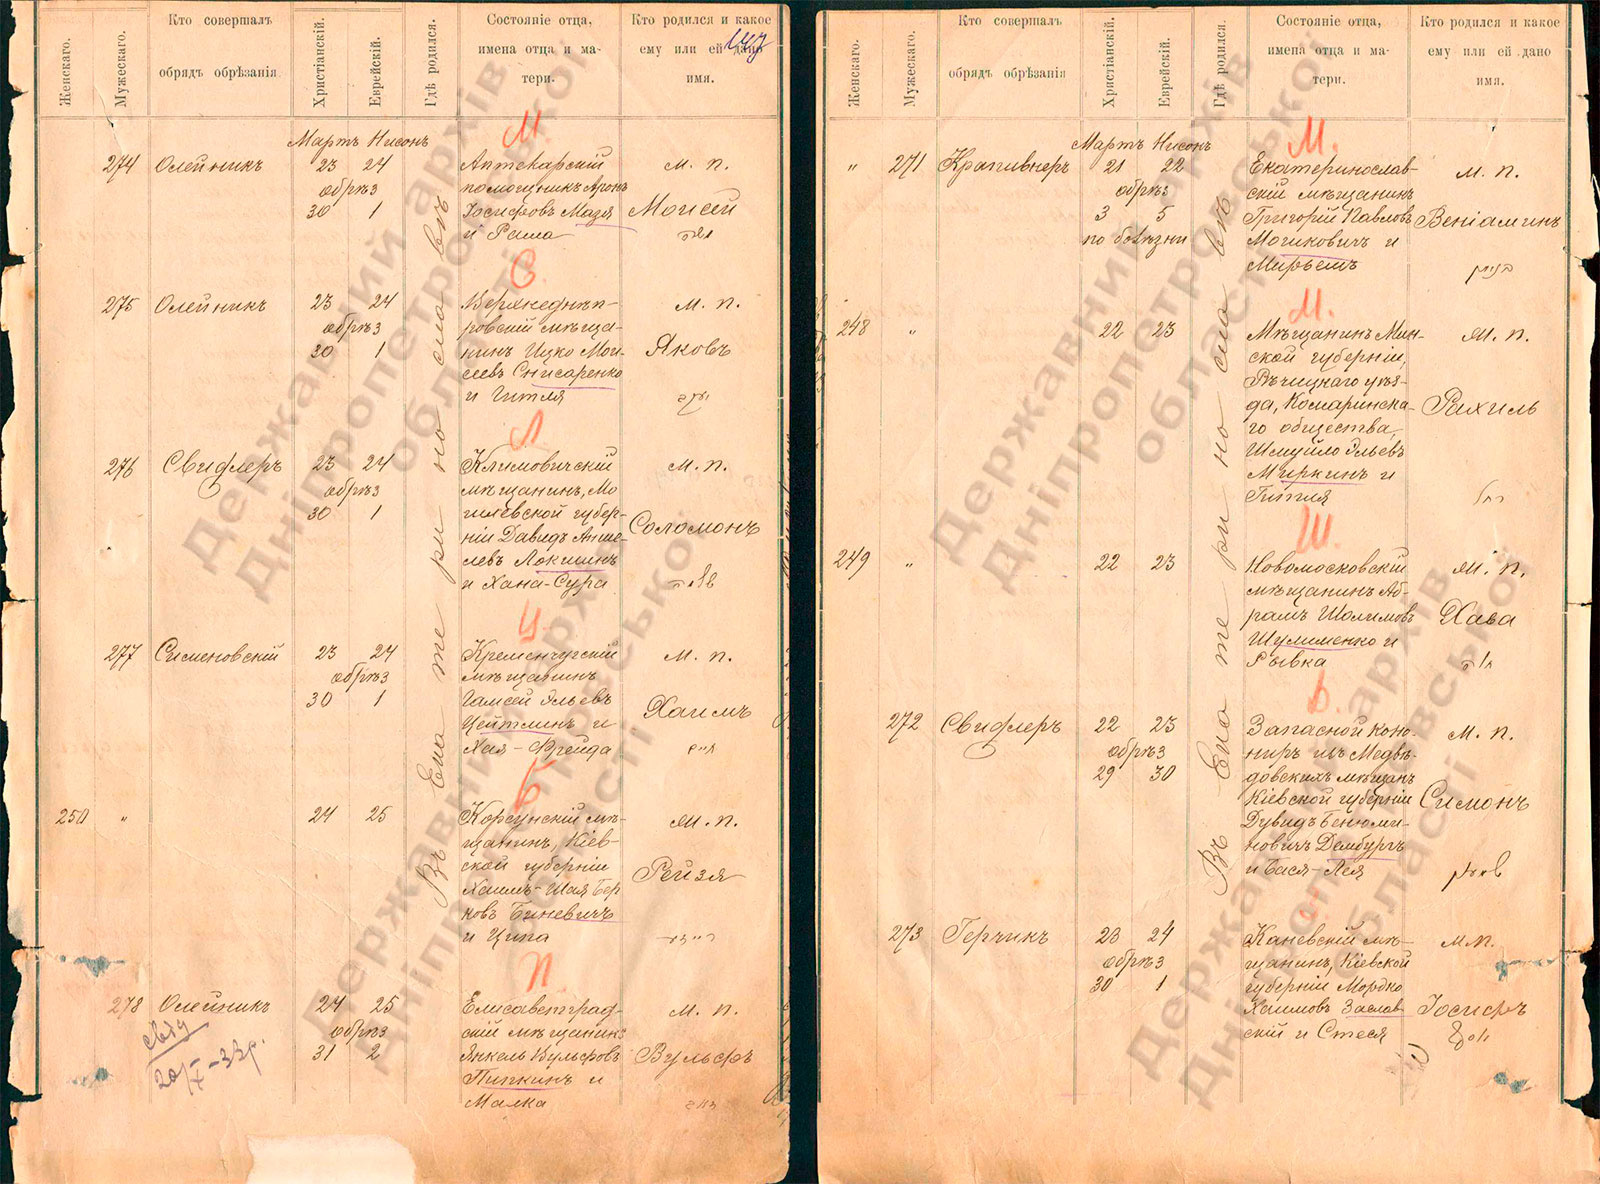 Женскаго.
Мужескаго.
Кто совершалъ
обрядъ обрѣзанія
Христіанскій.
Еврейскій.
Гдѣ родился.
Состояніе отца,
имена отца и ма-
тери.
Кто родился и какое
ему или ей дано
имя.
Мартъ Нисонъ
М.
274 Олейникъ 23 24
обрѣз
30 1
Аптекарскій
помощникъ Аронъ
Іосифовъ Мазя
и Раша
м. п.
Моисей
משה
С.
275 Олейникъ 23 24
обрѣз
30 1
Верхнеднѣп-
ровскій мѣща-
нинъ Ицко Мои-
сеевъ Снисаренко
и Гитля
м. п.
Яковъ
יעקב
Л
276 Свифлеръ 23 24
обрѣз
30 1
Климовичскій
мѣщанинъ, Мо
гилевской губер-
ніи Давидъ Анше-
левъ Локшинъ
и Хана-Сура
м. п.
Соломонъ
שלמה
Ц.
277 Сименовскій 23 24
обрѣз
30 1
Кременчугскій
мѣщанинъ
Гамсей Эльевъ
Цейтлинъ и
Хая-Фрейда
м. п.
Хаимъ
חיים
Б
250 „ 24 25
Корсунскій мѣ-
щанинъ, Кіев-
ской губерніи
Хаимъ-Шая Бер
ковъ Биневичъ
и Ципа
м. п.
Рейзя
רייזא
П
278 Олейникъ 24 25
обрѣз
31 2
Елисаветград-
скій мѣщанинъ
Янкель Вульфовъ
Пипкинъ и
Малка
м. п.
Вульфъ
20/X-33р.
Въ Екатеринославѣ
Женскаго.
Мужескаго.
Кто совершалъ
обрядъ обрѣзанія
Христіанскій.
Еврейскій.
Гдѣ родился.
Состояніе отца,
имена отца и ма-
тери.
Кто родился и какое
ему или ей дано
имя.
Мартъ Нисонъ
М.
„ 271 Крапивнеръ 21 22
обрѣз
3 5
по болѣзни
Екатеринослав-
скій мѣщанинъ
Григорій Павловъ
Могилевичъ и
Мирьемъ
м. п.
Веніаминъ
בנימין
М.
248 „ 22 23
Мѣщанинъ Мин-
ской губерніи,
Рѣчицкаго уѣз-
да, Комаринска-
го общества,
Шмуйло Эльевъ
Миркинъ и
Гитля
м. п.
Рахиль
רחל
Ш.
249 „ 22 23
Новомосковскій
мѣщанинъ Аб-
рамъ Шолимовъ
Шулименко и
Рывка
м. п.
Хава
חוה
Д.
272 Свифлеръ 22 23
обрѣз
29 30
Запасной кано-
ниръ изъ Медвѣ-
довскихъ мѣщанъ
Кіевской губерніи
Дувидъ Беніоми-
новичъ Дембургъ
и Бася-Лея
м. п.
Симонъ
שמעון
273 Герчикъ 23 24
обрѣз
30 1
Каневскій мѣ-
щанинъ, Кіевской
губерніи Мордко
Хаимовъ Заслав
скій и Стеся
м. п.
Іосифъ
יוסף
Въ Екатеринославѣ
Державний архів
Дніпропетровської
області